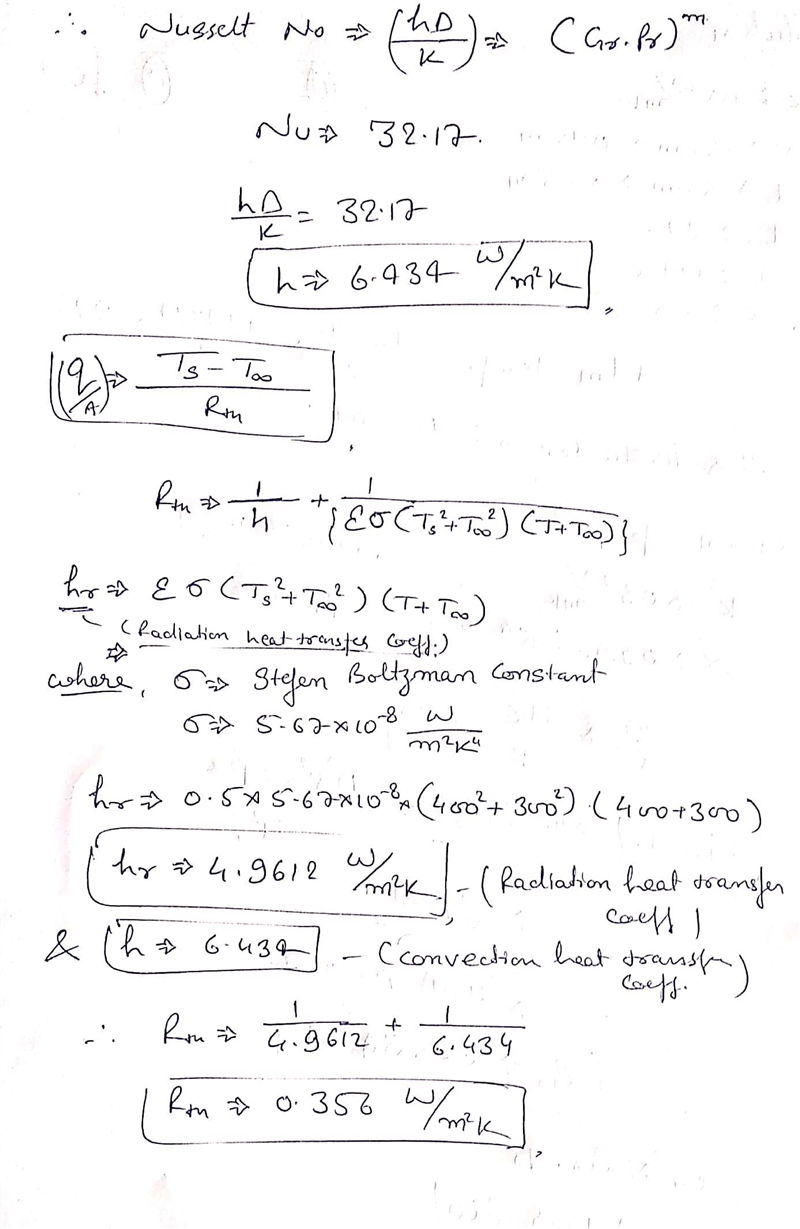 ∴ Nusselt No ⇒ (hD/K) ⇒ (Gr.Pr)^m
Nu ⇒ 32.17.
hD/K = 32.17
h ⇒ 6.434 W/m²K
(q/A) ⇒ (Ts - T∞)/Rth
Rth ⇒ 1/h + 1/{εσ(Ts²+T∞²)(T+T∞)}
hr ⇒ εσ(Ts²+T∞²)(T+T∞)
(Radiation heat transfer coeff.)
⇒
where, σ ⇒ Stefen Boltzman Constant
σ ⇒ 5.67×10⁻⁸ W/m²K⁴
hr ⇒ 0.5×5.67×10⁻⁸×(400²+300²)(400+300)
hr ⇒ 4.9612 W/m²K - (Radiation heat transfer
coeff)
& h ⇒ 6.434 - (convection heat transfer)
coeff.
∴ Rth ⇒ 1/4.9612 + 1/6.434
Rth ⇒ 0.356 W/m²K